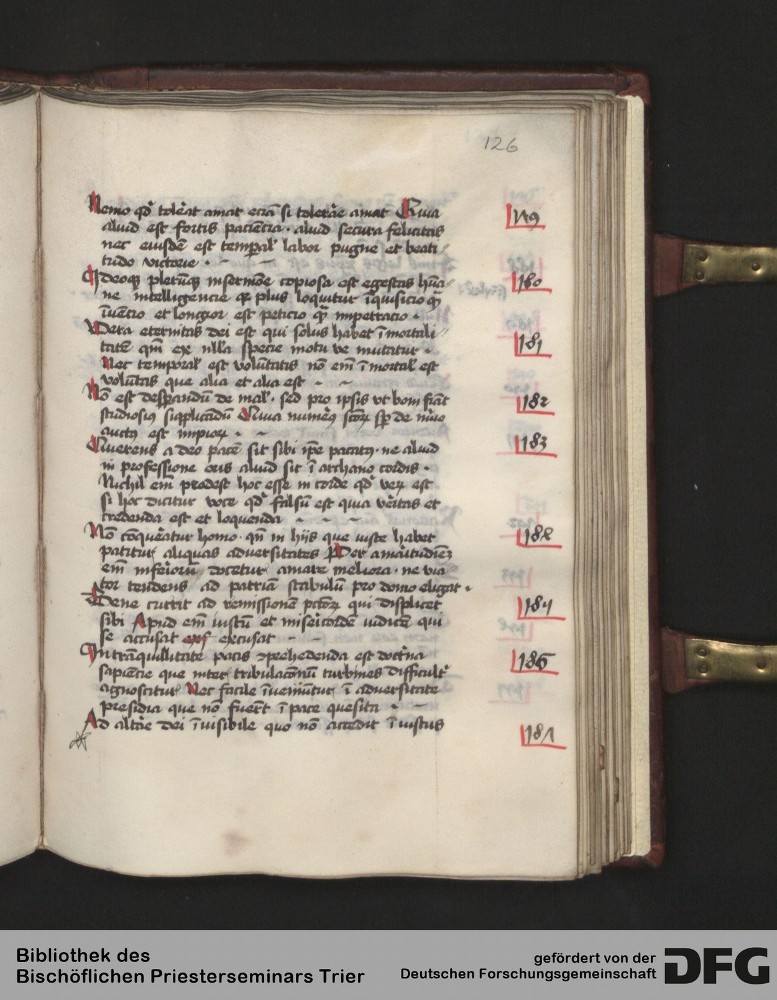 126
Nemo qd tolerat amat eciā si tolerare amat Quia 179
aliud est fortis paciencia · aliud secura felicitas
nec eiusdē est temꝑal' labor pugne et beati
tudo victorie ·
Ideoqꝫ plerūqꝫ in sermōe copiosa est egestas hūa 180
ne intelligencie qꝛ plus loquitur īquisicio qͣꝫ
īuēcio et longior est peticio qͣꝫ impetracio ·
Vera eternitas dei est qui solus habet ī mortali 181
tatē qm̄ ex nlla specie motu ve mutatur ·
Nec temporal' est volūtatis nō em̄ ī mortal' est
volūtas que alia et alia est
Nō est despandū de mal' · sed pro ipsis vt boni fiāt 182
studiosiꝰ supplicādū Quia numerꝰ sctoꝝ sp de nūo
auctꝰ est impioꝝ ·
Querens a deo pacē sit sibi ip̄e pacatꝰ · ne aliud 183
in professione oris aliud sit ī archano cordis ·
Nichil em̄ prodest hoc esse in corde qd veꝝ est
si hoc dicitur voce qd falsū est quia veritas et
credenda est et loquenda
Nō cōqueratur homo · qn̄ in hijs que iuste habet 184
patitur aliquas aduersitates Per amaritudinē
em̄ inferiorū docetur amare meliora · ne via
tor tendens ad patriā stabulū pro domo eligat ·
Bene currit ad remissionē pctoꝝ qui displicet 185
sibi Apud em̄ iustū et misericordē iudicē qui
se accusat excusat
In trāquillitate pacis ꝯprehēdenda est doctrīa 186
sapiēcie que inter tribulacōnū turbines difficult'
agnoscitur Nec facile īueniūtur ī aduersitate
presidia que nō fuerīt ī pace quesita ·
Ad altare dei īuisibile quo nō accedit ī iustus 187
Bibliothek des
Bischöflichen Priesterseminars Trier
gefördert von der
Deutschen Forschungsgemeinschaft DFG